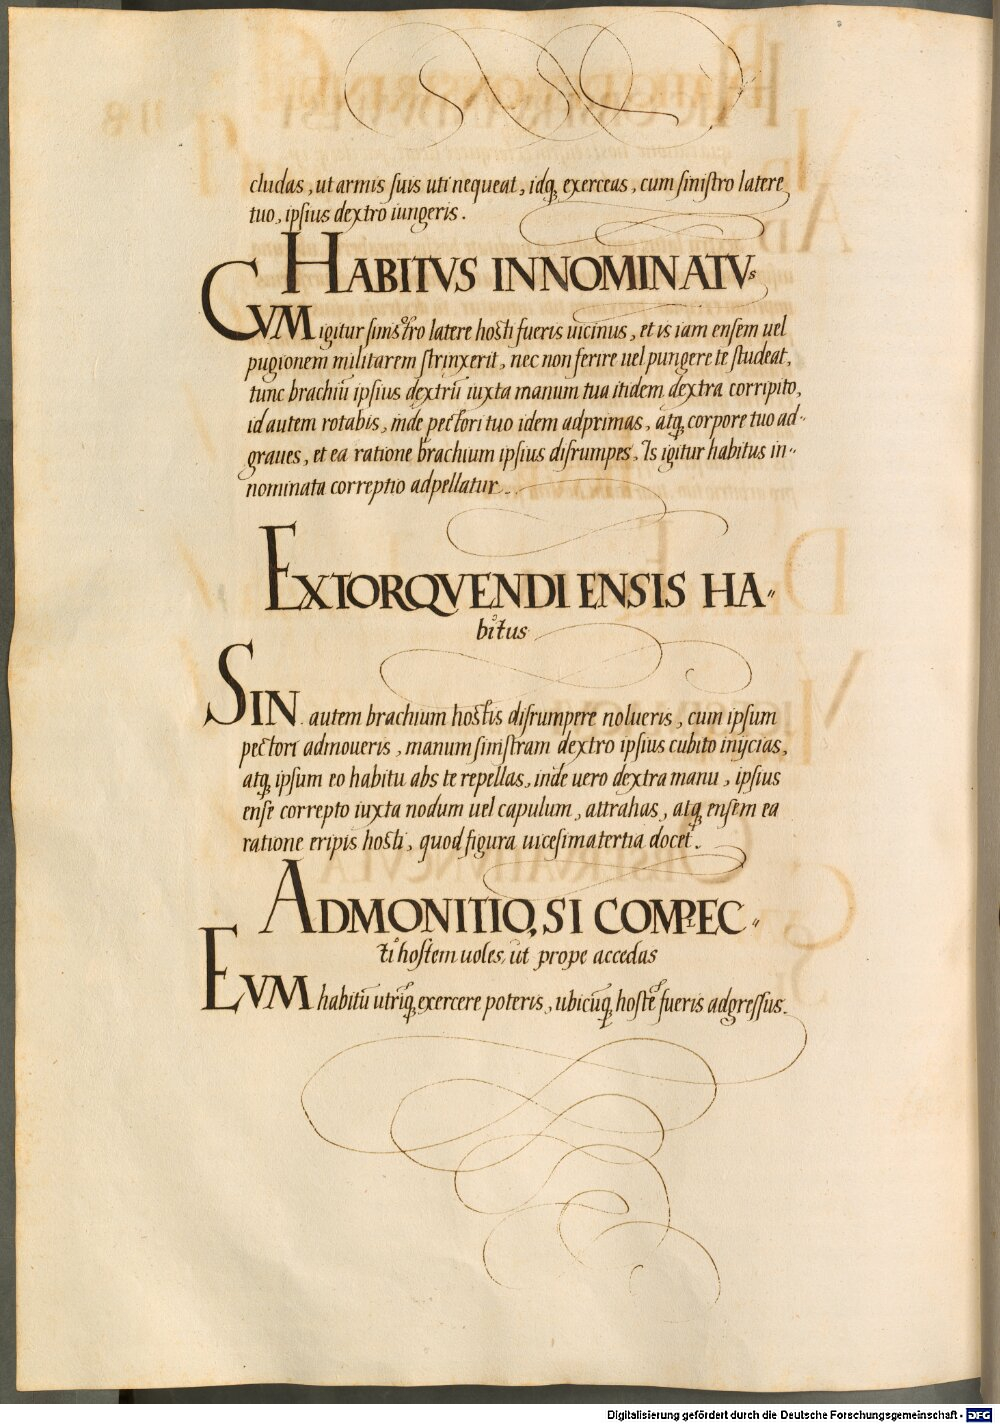 cludas, ut armis suis uti nequeat, idq, exerceas, cum sinistro latere
tuo, ipsius dextro iungeris.
HABITVS INNOMINATVs
CVM igitur sinistro latere hosti fueris uicinus, et is iam ensem uel
pugionem militarem strinxerit, nec non ferire uel pungere te studeat,
tunc brachiū ipsius dextrū iuxta manum tua itidem dextra corripito,
id autem rotabis, inde pectori tuo idem adprimas, atq, corpore tuo ad-
graues, et ea ratione brachium ipsius disrumpes. Is igitur habitus in-
nominata correptio adpellatur.
EXTORQVENDI ENSIS HA-
bitus
SIN autem brachium hostis disrumpere nolueris, cum ipsum
pectori admoueris, manum sinistram dextro ipsius cubito inijcias,
atq, ipsum eo habitu abs te repellas, inde uero dextra manu, ipsius
ense correpto iuxta nodum uel capulum, attrahas, atq, ensem ea
ratione eripis hosti, quod figura uicesimatertia docet.
ADMONITIO, SI COMPLEC-
ti hostem uoles, ut prope accedas
EVM habitū utriq, exercere poteris, ubicūq, hostē fueris adgressus.
Digitalisierung gefördert durch die Deutsche Forschungsgemeinschaft - DFG